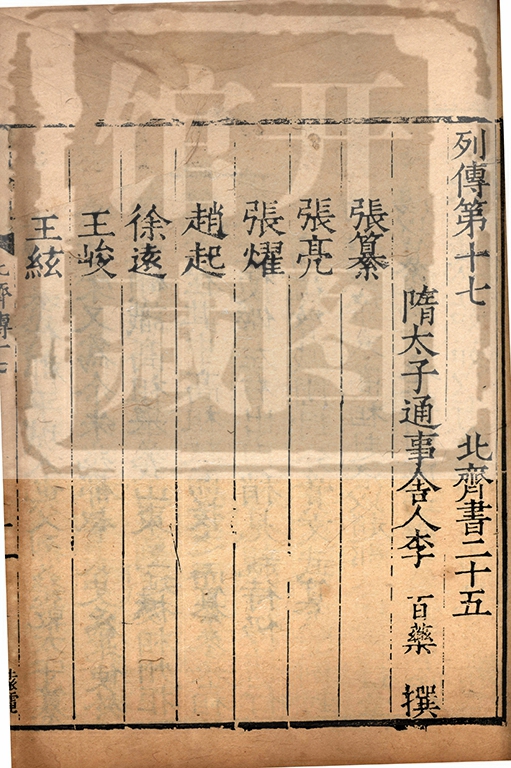 列傳第十七 北齊書二十五
隋太子通事舍人李 百藥 撰
張纂
張亮
張燿
趙起
徐遠
王峻
王紘
北齊傳十七